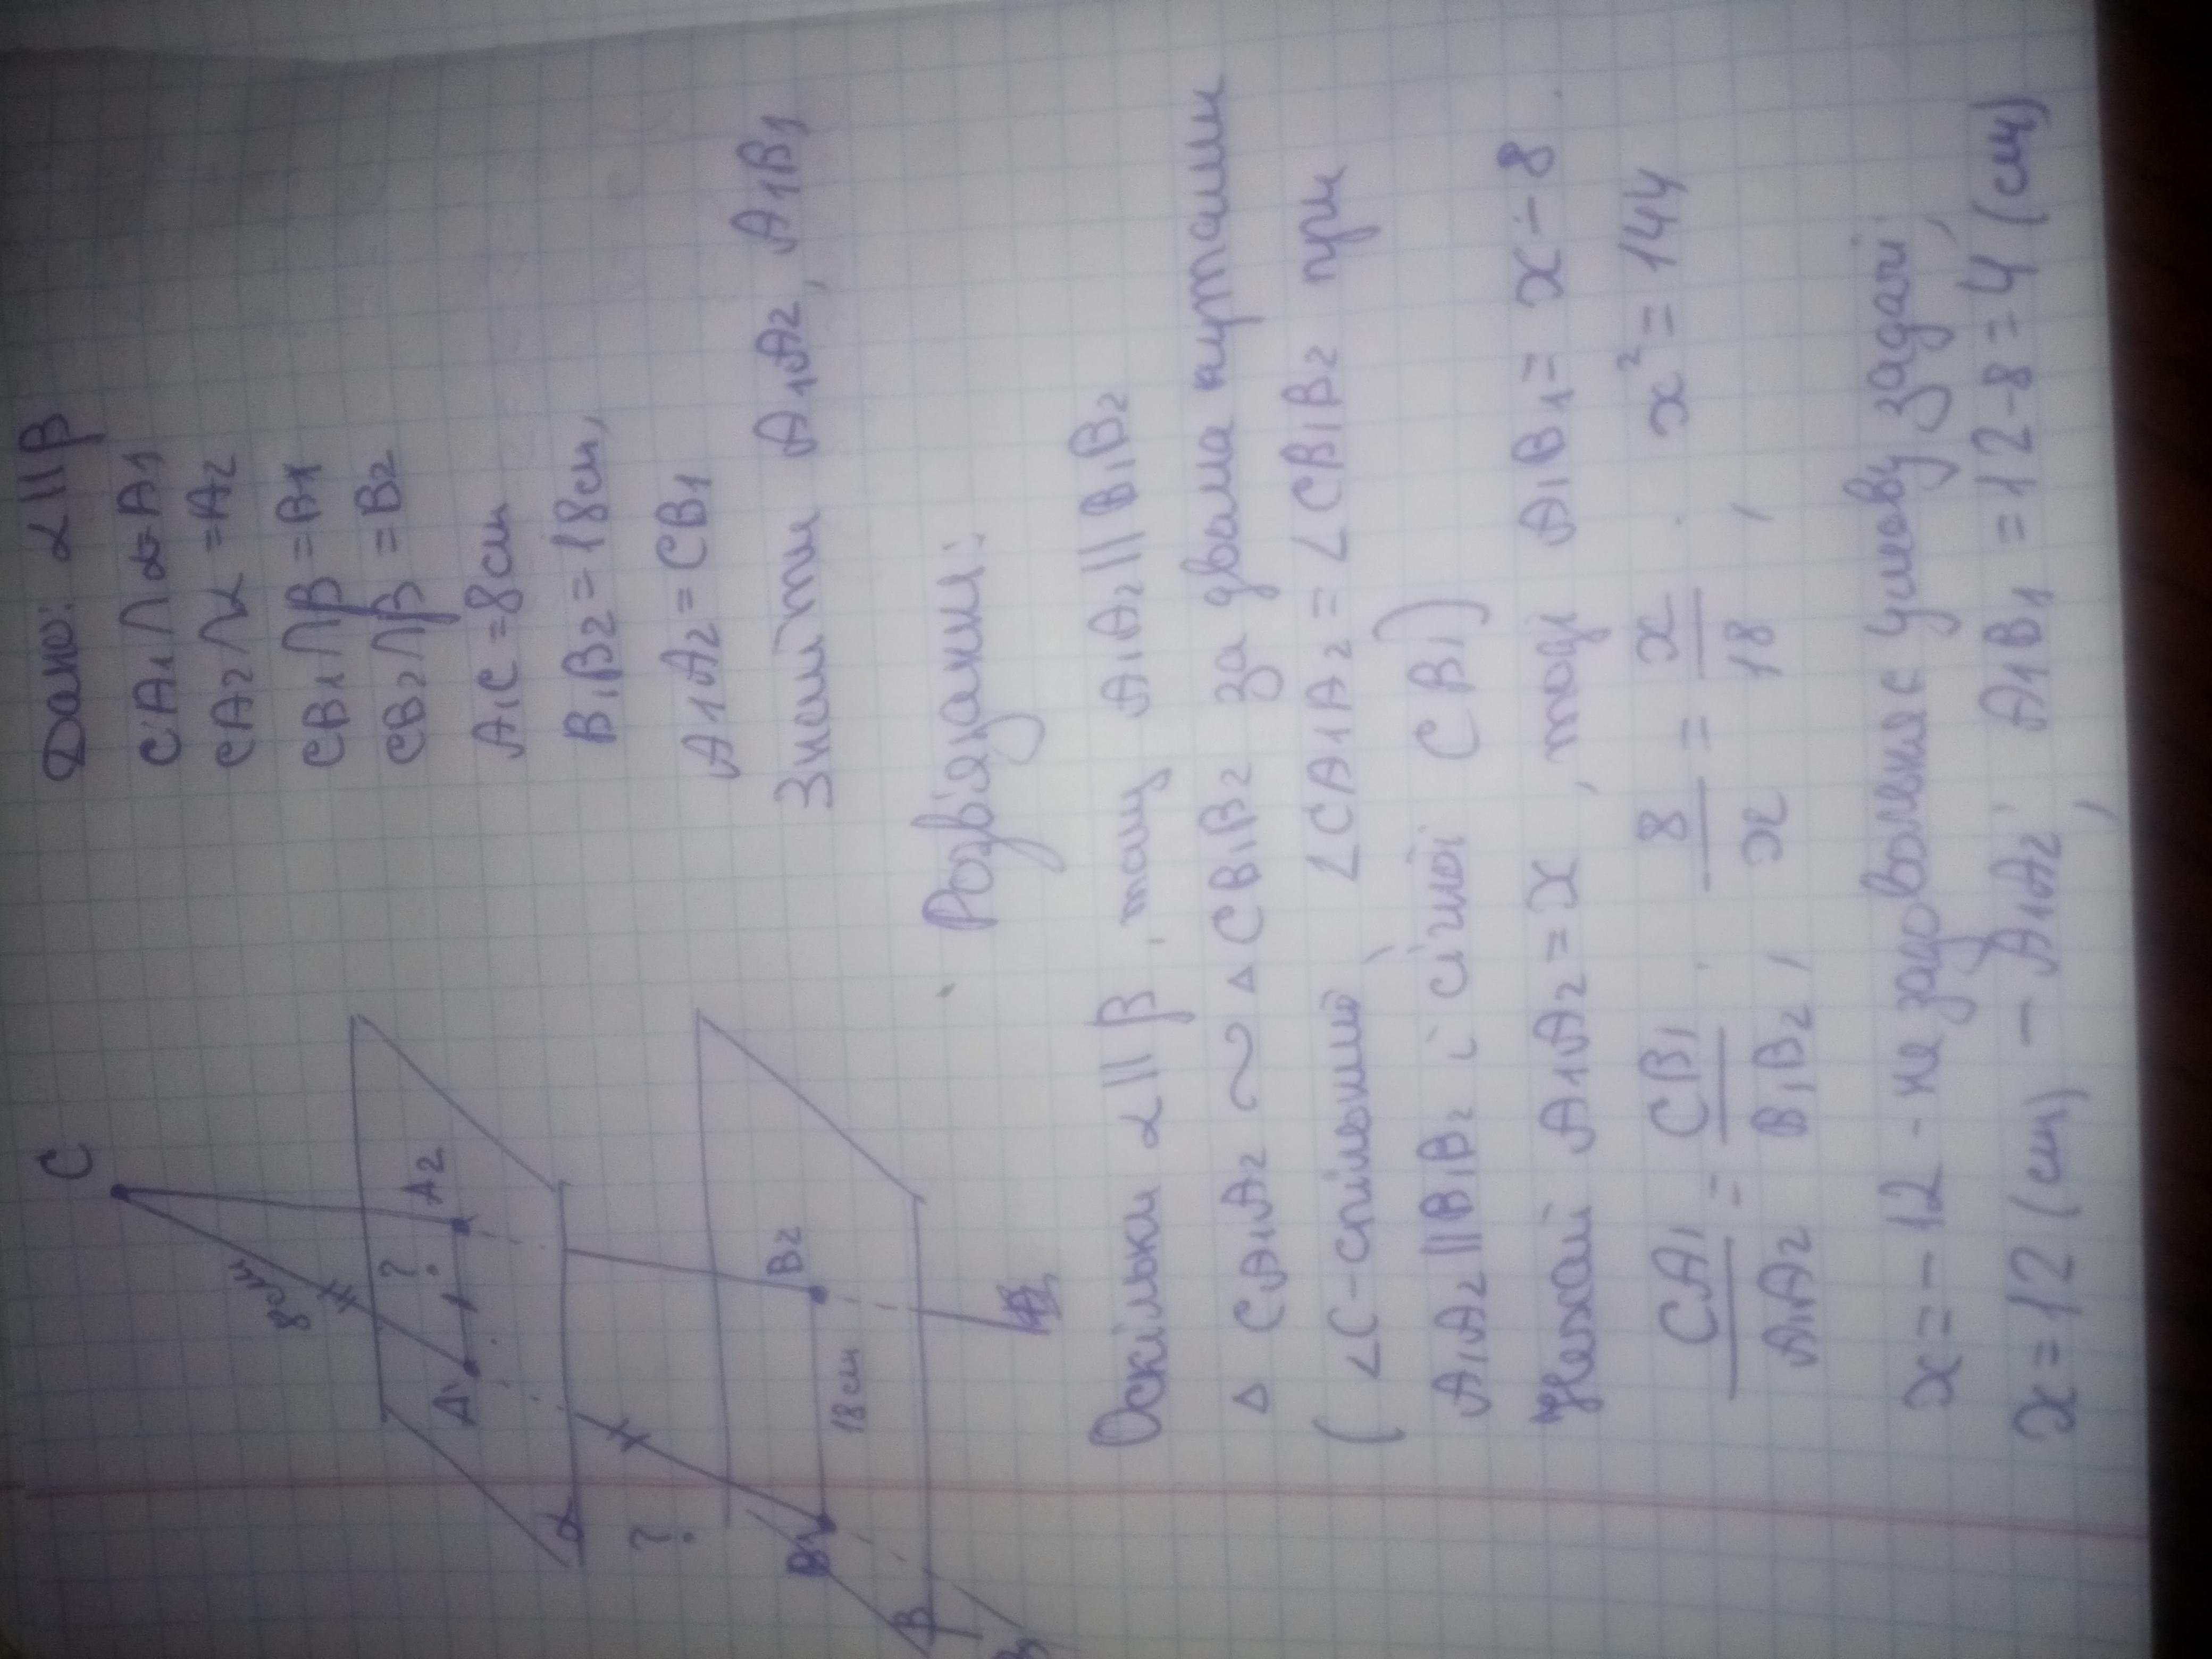 C
8см
A1
?
A2
α
?
B1
B2
18см
β
Дано: α||β
CA1∩α=A1
CA2∩α=A2
CB1∩β=B1
CB2∩β=B2
A1C=8см
B1B2=18см,
A1A2=CB1
Знайти A1A2, A1B1
Розв'язання:
Оскільки α||β, тому A1A2||B1B2
△CA1A2 ~ △CB1B2 за двома кутами
(∠C-спільний, ∠CA1A2=∠CB1B2 при
A1A2||B1B2 і січній CB1)
Нехай A1A2=x, тоді A1B1=x-8.
CA1/A1A2 = CB1/B1B2, 8/x = x/18, x²=144
x=-12 - не задовольняє умову задачі,
x=12(см) - A1A2, A1B1=12-8=4(см)